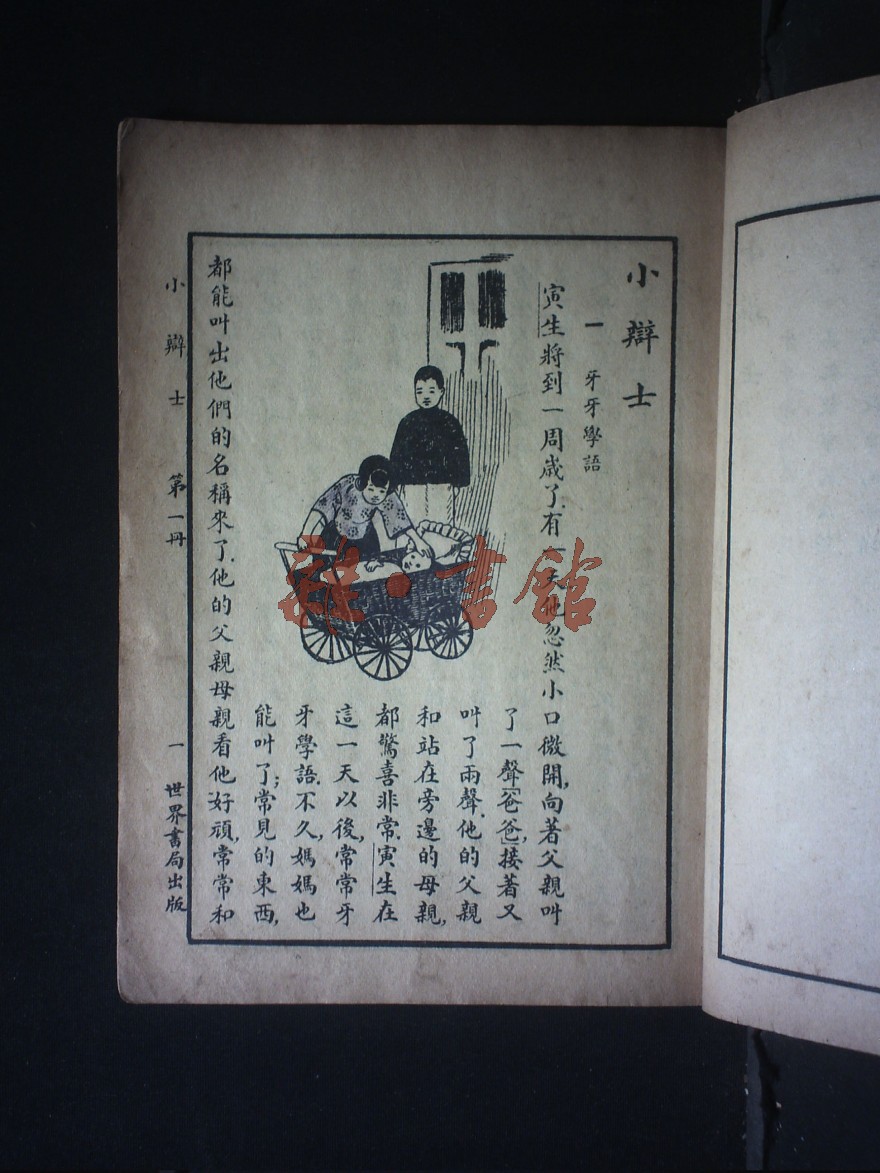 小辯士
一 牙牙學語
寅生將到一周歲了.有一天他忽然小口微開,向著父親叫
了一聲「爸爸」,接著又
叫了兩聲.他的父親
和站在旁邊的母親,
都驚喜非常.寅生在
這一天以後,常常牙
牙學語.不久,媽媽也
能叫了;常見的東西,
都能叫出他們的名稱來了.他的父親母親看他好頑,常常和
小辯士 第一冊 一 世界書局出版
雜·書館